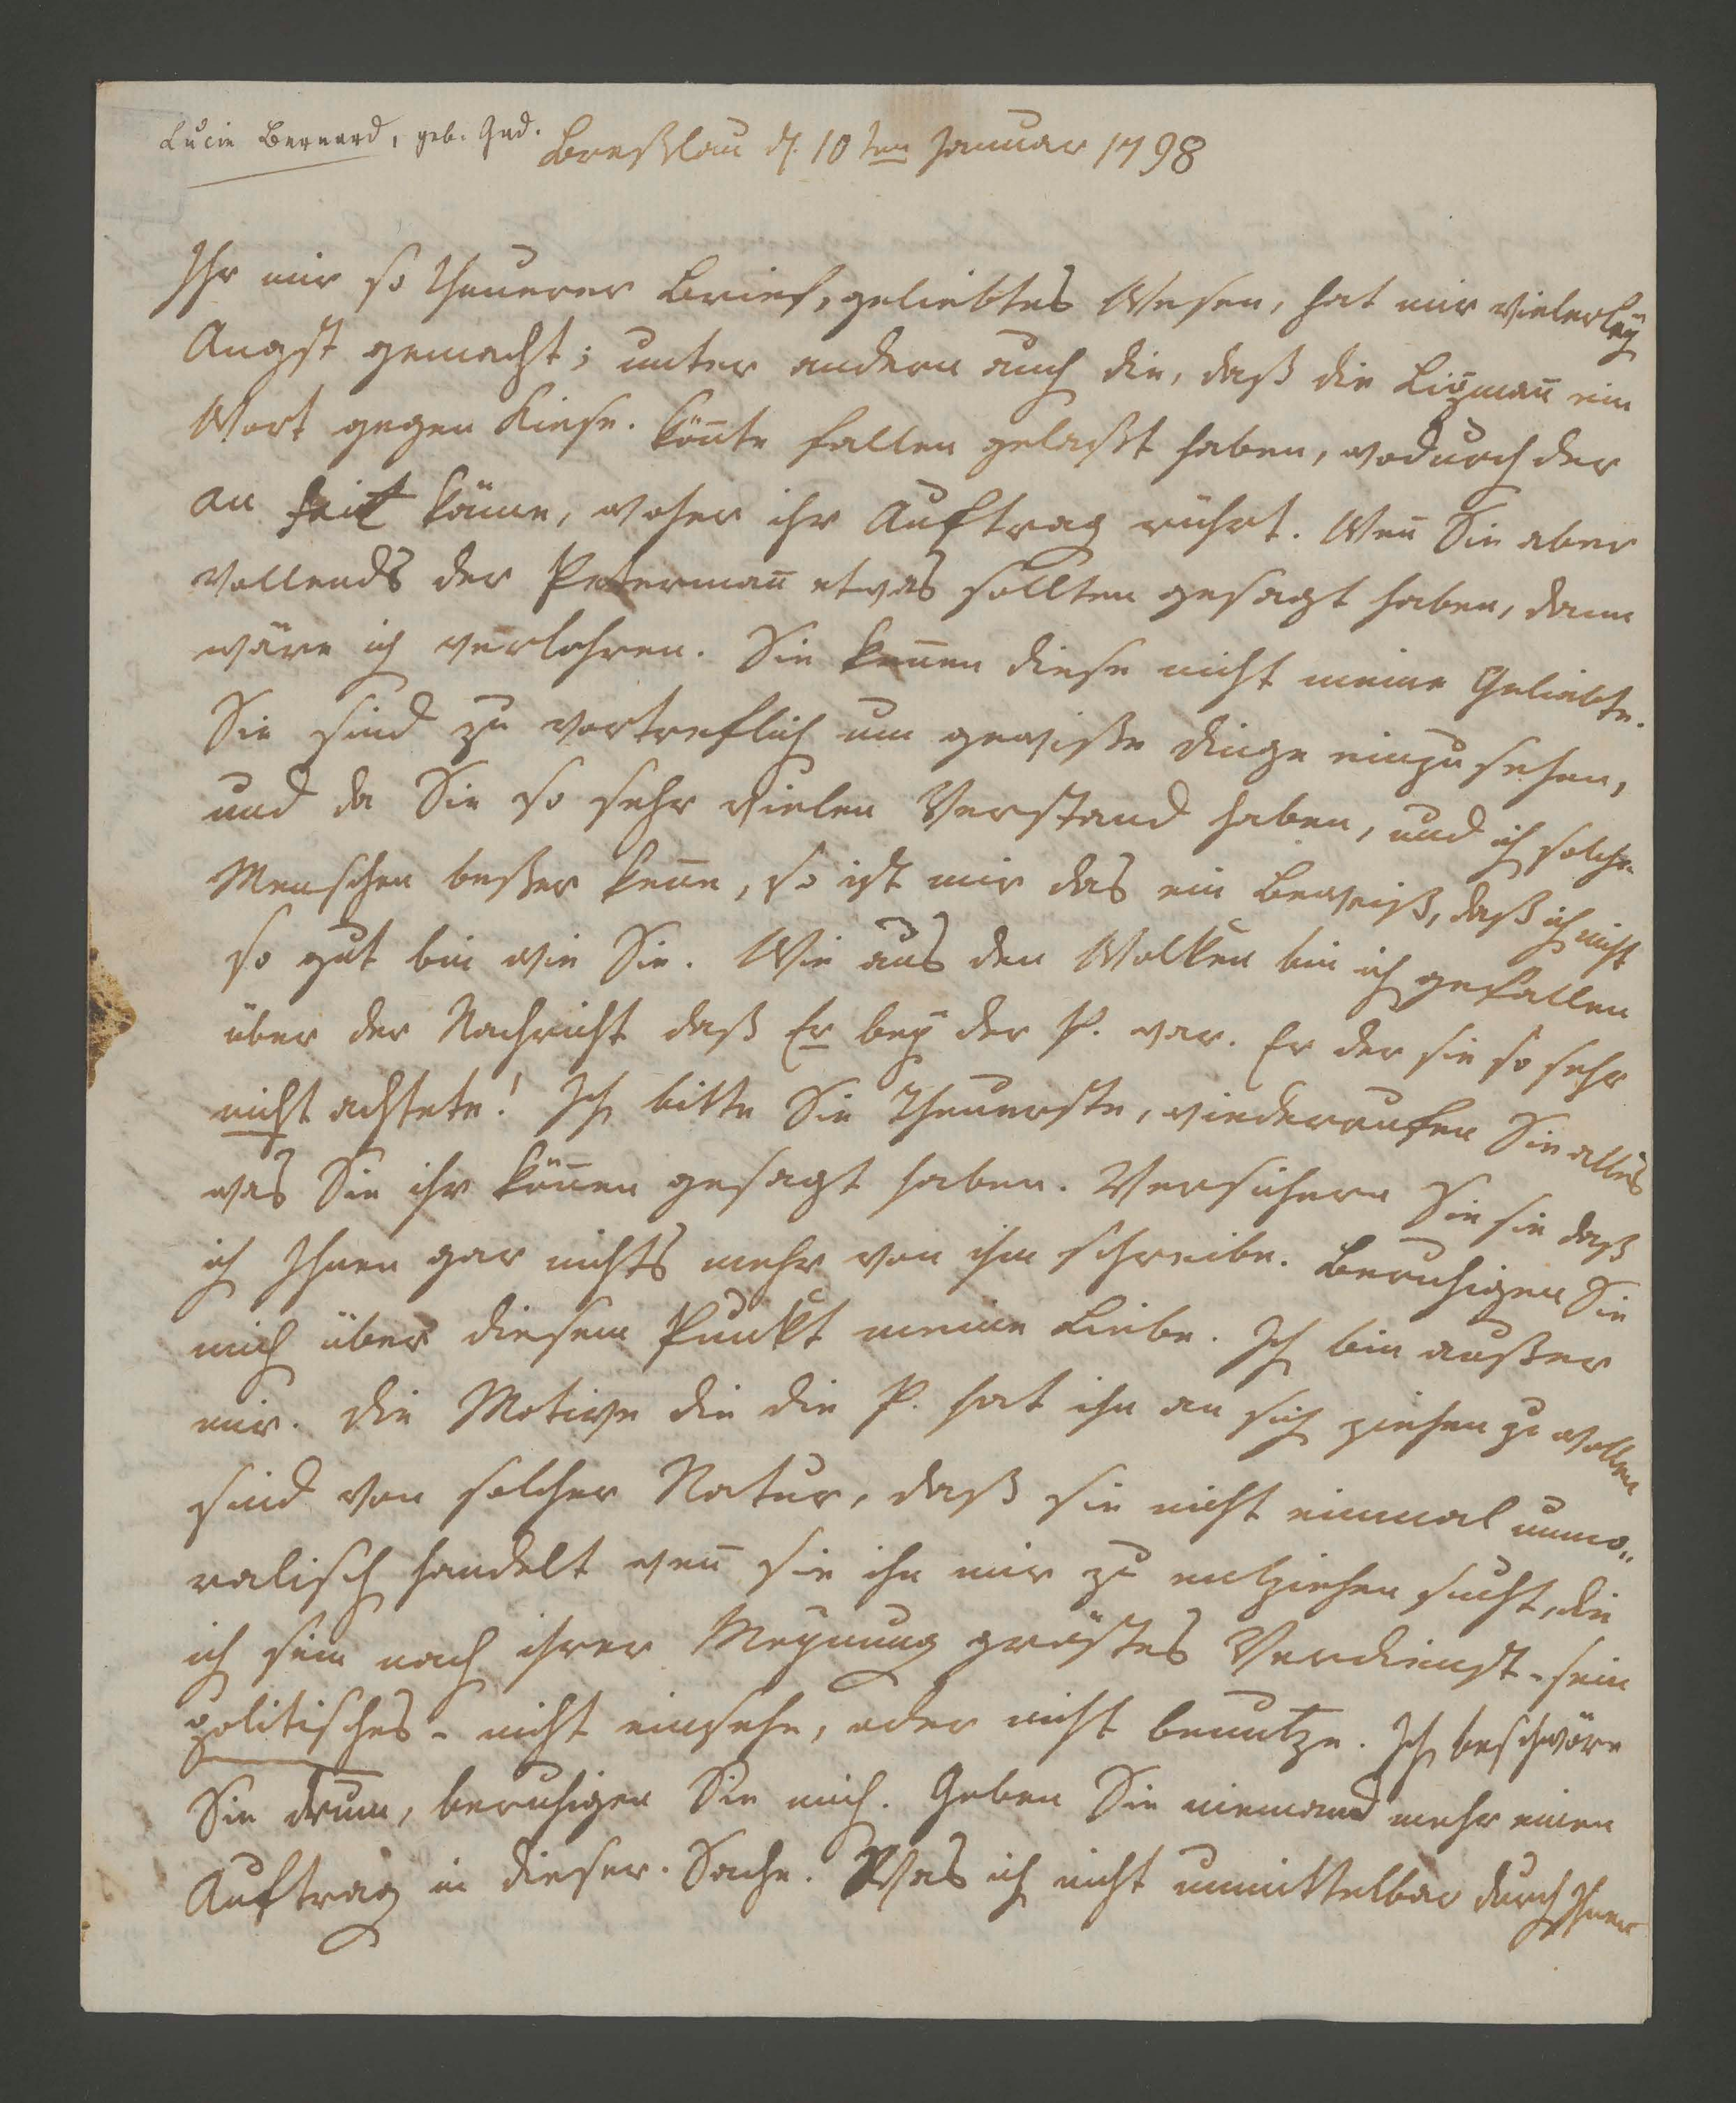 Lucie Bernard, geb. Gad.
Breßlau d. 10ten Januar 1798
Ihr mir so theurer Brief, geliebtes Wesen, hat mir vielerleÿ
Angst gemacht; unter andern auch die, daß die Lizman̄ ein
Wort gegen Kiese. kön̄te fallen gelaßt haben, wodurch der
an käme, woher ihr Auftrag rührt. Wen̄ Sie aber
vollends der Peterman̄ etwas sollten gesagt haben, dann
wäre ich verlohren. Sie ken̄en diese nicht meine Geliebte.
Sie sind zu vortreflich um gewiße Dinge einzusehen,
und da Sie so sehr vielen Verstand haben, und ich solche
Menschen beßer ken̄e, so ist mir das ein Beweiß, daß ich nicht
so gut bin wie Sie. Wie aus den Wolken bin ich gefallen
über der Nachricht daß Er beÿ der P. war. Er der sie so sehr
nicht achtete! Ich bitte Sie Theuerste, wiederrufen Sie alles
was Sie ihr kön̄en gesagt haben. Versichern Sie sie daß
ich Ihnen gar nichts mehr von ihm schreibe. Beruhigen Sie
mich über diesem Punkt meine Liebe. Ich bin außer
mir. Die Motive die die P. hat ihn an sich ziehen zu wollen
sind von solcher Natur, daß sie nicht einmal unmo„
ralisch handelt wen̄ sie ihn mir zu entziehen sucht, die
ich sein nach ihrer Meynung größtes Verdienst - sein
politisches - nicht einsehe, oder nicht benutze. Ich beschwöre
Sie drum, beruhigen Sie mich. Geben Sie niemand mehr einen
Auftrag in dieser Sache. Was ich nicht unmittelbar durch Ihnen